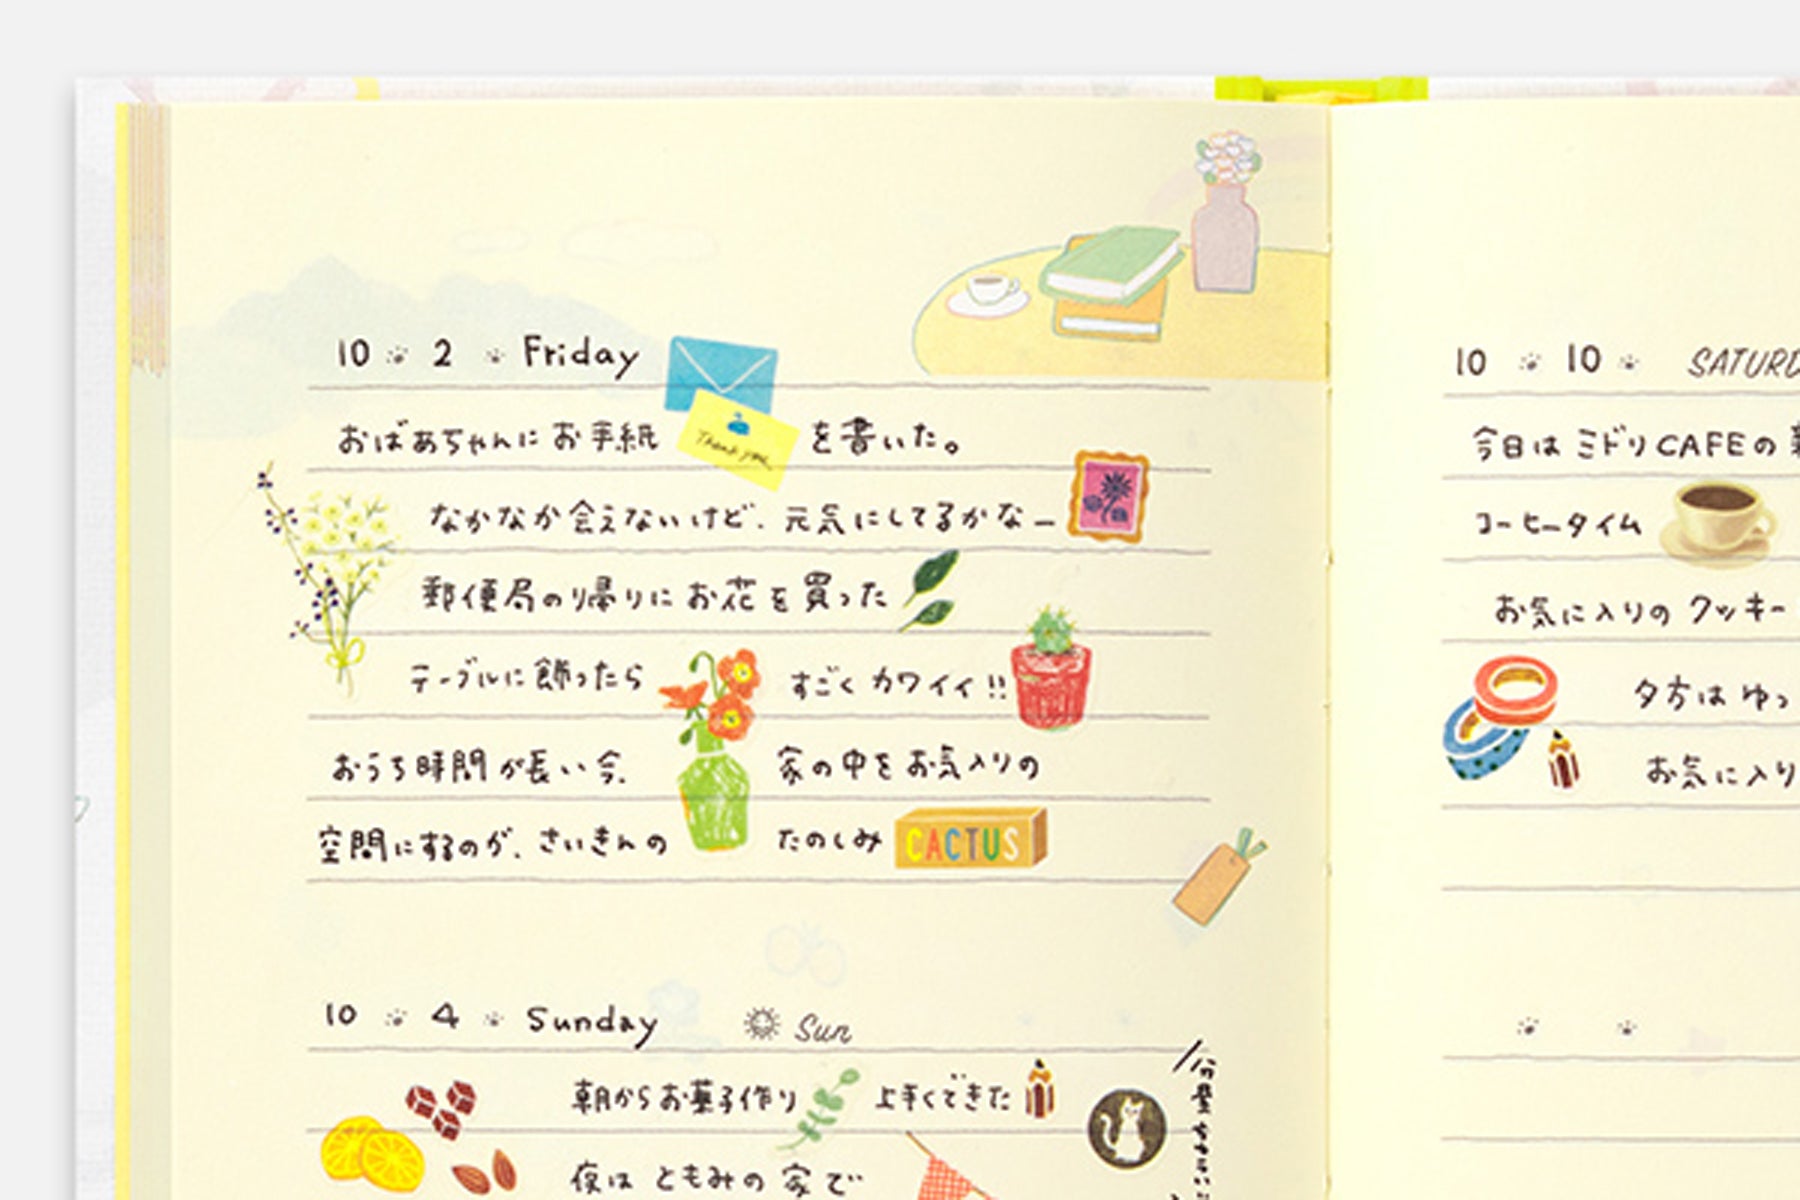 10 2 Friday
おばあちゃんに お手紙 Thank you を書いた。
なかなか会えないけど、元気にしてるかなー
郵便局の帰りに お花を買った
テーブルに飾ったら すごくカワイイ!!
おうち時間が長い今、 家の中をお気入りの
空間にするのが、さいきんの たのしみ CACTUS
10 4 Sunday Sun
朝からお菓子作り 上手くできた
夜は ともみの家で
10 10 SATURD
今日は ミドリCAFEの
コーヒータイム
お気に入りの クッキー
夕方は ゆっ
お気に入り